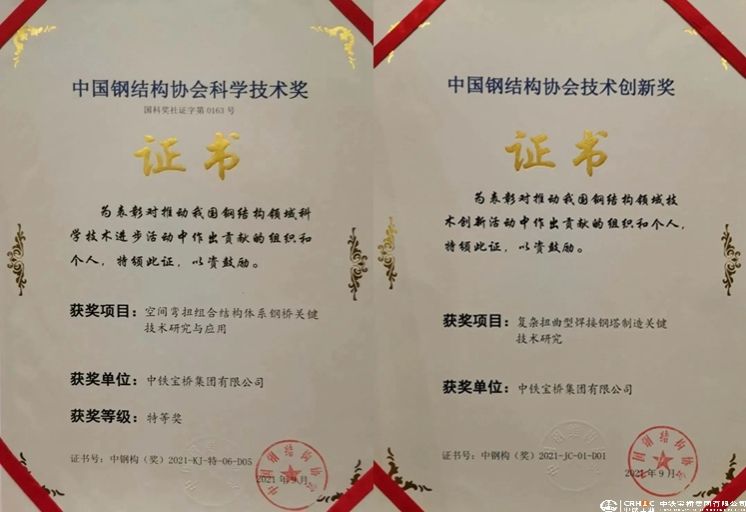 中国钢结构协会科学技术奖
国科奖社证字第0163号
证书
为表彰对推动我国钢结构领域科
学技术进步活动中作出贡献的组织和
个人，特颁此证，以资鼓励。
获奖项目：空间弯扭组合结构体系钢桥关键
技术研究与应用
获奖单位：中铁宝桥集团有限公司
获奖等级：特等奖
证书号：中钢构（奖）2021-KJ-特-06-D05
中国钢结构协会
2021年9月
中国钢结构协会技术创新奖
证书
为表彰对推动我国钢结构领域技
术创新活动中作出贡献的组织和个人，
特颁此证，以资鼓励。
获奖项目：复杂扭曲型焊接钢塔制造关键
技术研究
获奖单位：中铁宝桥集团有限公司
证书号：中钢构（奖）2021-JC-01-D01
中国钢结构协会
2021年9月
中铁宝桥集团有限公司